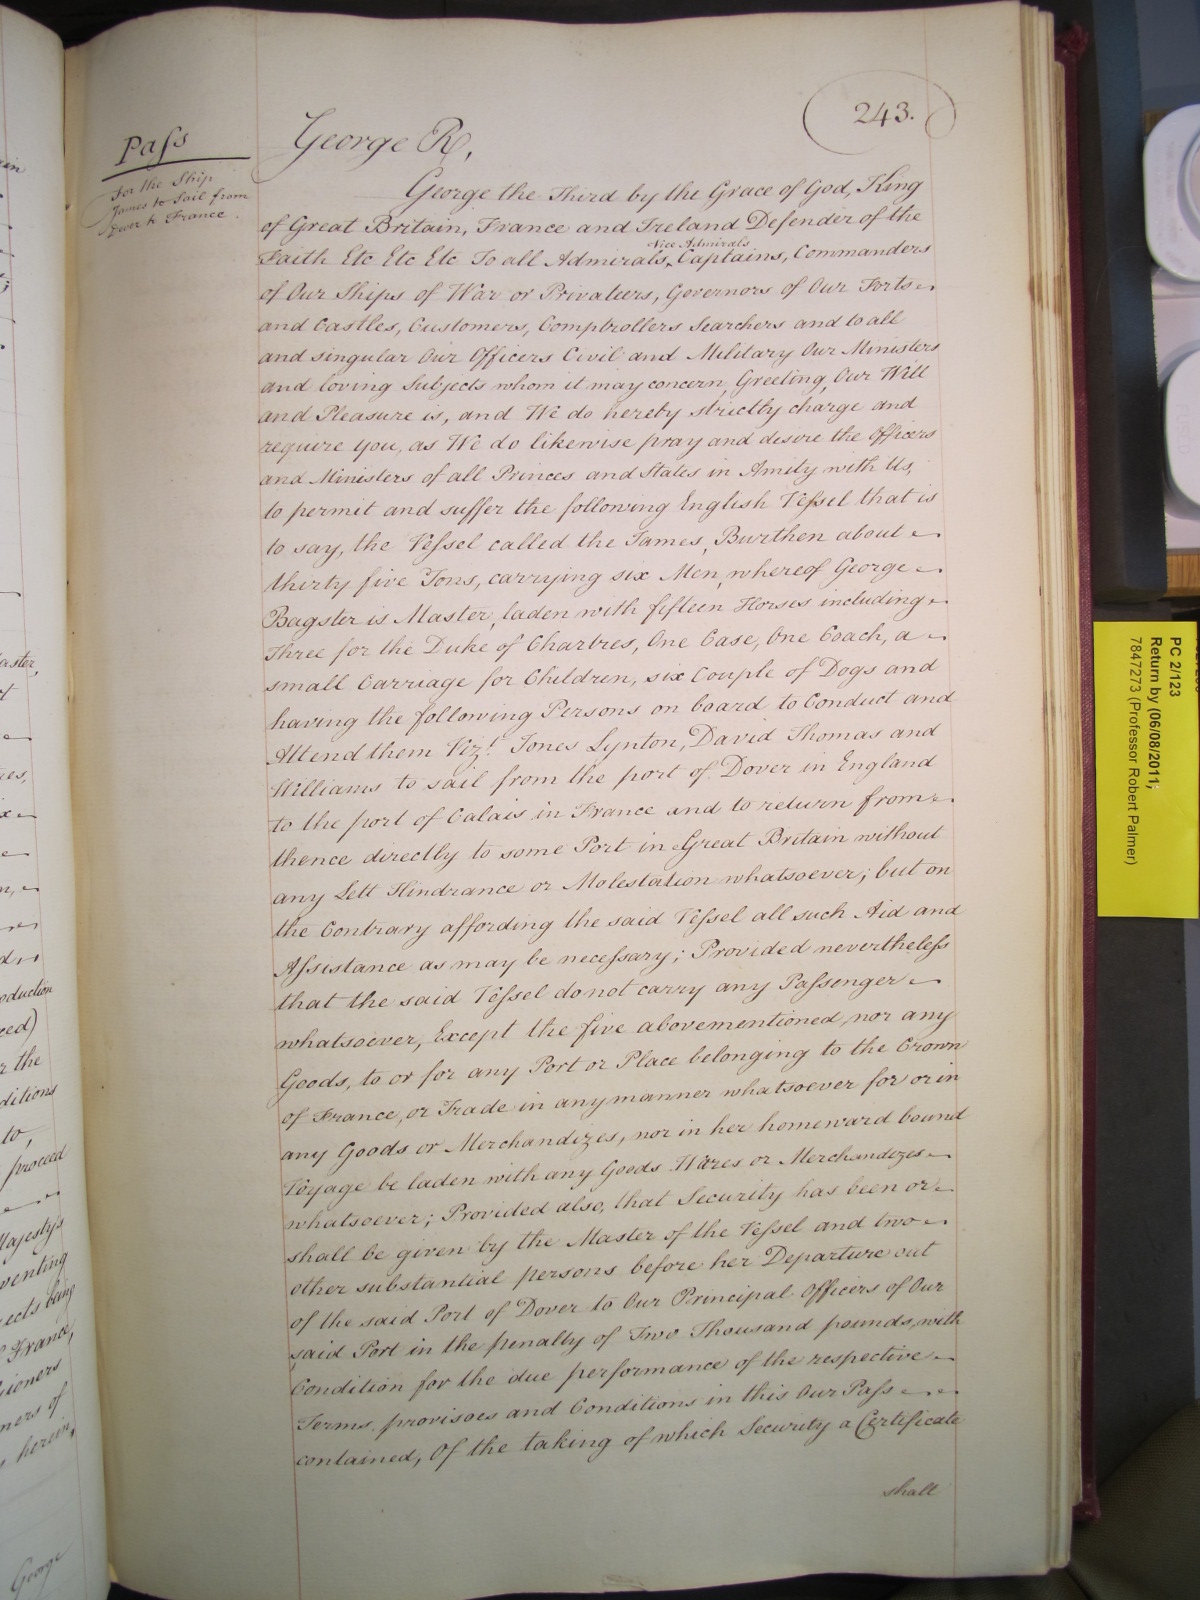 243.
Pass
for the Ship
James to Sail from
Dover to France.
George R,
George the Third by the Grace of God, King
of Great Britain, France and Ireland Defender of the
Faith Etc Etc Etc To all Admirals, Vice Admirals Captains, Commanders
of Our Ships of War or Privateers, Governors of Our Forts
and Castles, Customers, Comptrollers Searchers and to all
and singular Our Officers Civil and Military Our Ministers
and loving Subjects whom it may concern, Greeting, Our Will
and Pleasure is, and We do hereby strictly charge and
require you, as We do likewise pray and desire the Officers
and Ministers of all Princes and States in Amity with Us,
to permit and suffer the following English Vessel that is
to say, the Vessel called the James, Burthen about
thirty five Tons, carrying six Men, whereof George
Bagster is Master, laden with fifteen Horses including
Three for the Duke of Chartres, One Case, One Coach, a
small Carriage for Children, six Couple of Dogs and
having the following Persons on board to Conduct and
Attend them Vizt. Jones Lynton, David Thomas and
Williams to sail from the port of Dover in England
to the port of Calais in France and to return from
thence directly to some Port in Great Britain without
any Lett Hindrance or Molestation whatsoever; but on
the Contrary affording the said Vessel all such Aid and
Assistance as may be necessary; Provided nevertheless
that the said Vessel do not carry any Passenger
whatsoever, Except the five abovementioned, nor any
Goods, to or for any Port or Place belonging to the Crown
of France, or Trade in any manner whatsoever for or in
any Goods or Merchandizes, nor in her homeward bound
Voyage be laden with any Goods Wares or Merchandizes
whatsoever; Provided also, that Security has been or
shall be given by the Master of the Vessel and two
other substantial persons before her Departure out
of the said Port of Dover to Our Principal Officers of Our
said Port in the penalty of Two Thousand pounds, with
Condition for the due performance of the respective
Terms, provisoes and Conditions in this Our Pass
contained, Of the taking of which Security a Certificate
shall
PC 2/123
Return by (06/08/2011;
7847273 (Professor Robert Palmer)
oduction
r the
ditions
to,
proceed
Majestys
venting
ects being
France,
herein,
George